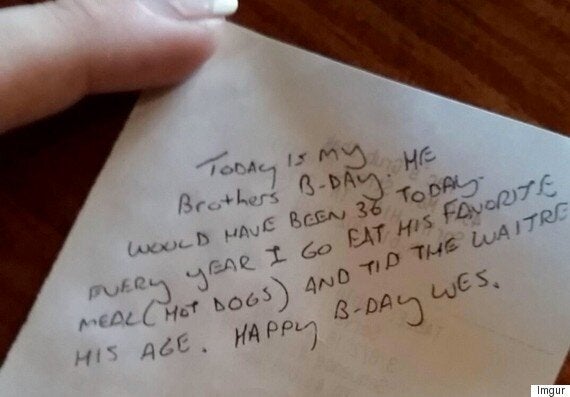 TODAY IS MY
Brothers B-DAY. HE
WOULD HAVE BEEN 36 TODAY.
EVERY YEAR I GO EAT HIS FAVORITE
MEAL (HOT DOGS) AND TID THE WAITRE
HIS AGE. HAPPY B-DAY WES.
Imgur